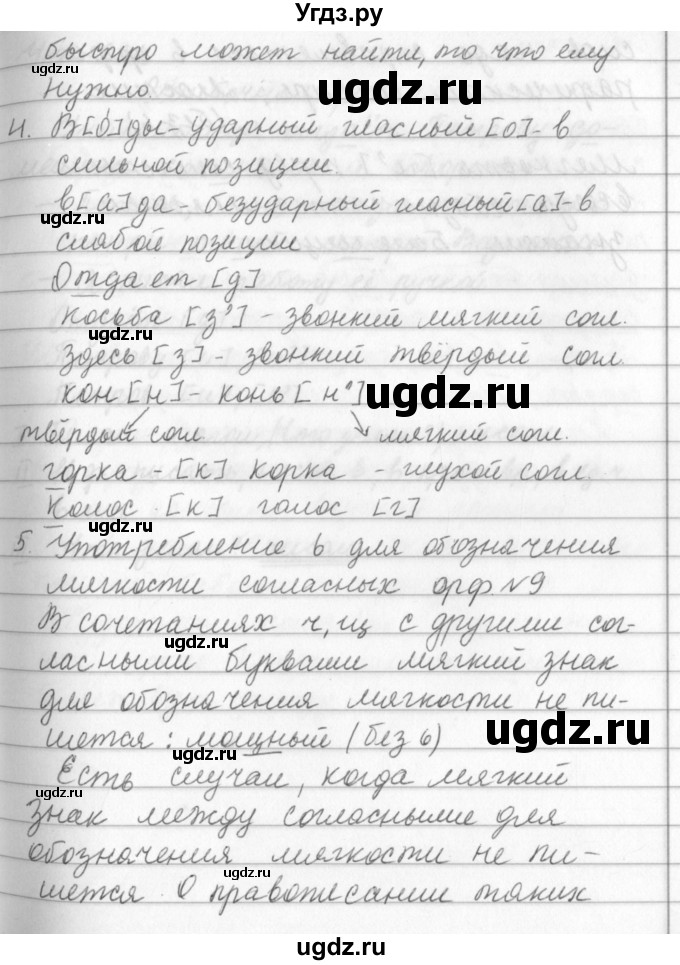 Угдз.ру
быстро может найти, то что ему
ugdz.ru
нужно.
ugdz.ru
4. В[о́]ды - ударный гласный [о] - в
сильной позиции.
в[а]да - безударный гласный [а] - в
ugdz.ru
слабой позиции
Отдает [д]
Косьба [з'] - звонкий мягкий согл.
ugdz.ru
Здесь [з] - звонкий твёрдый согл.
кон [н] - конь [н']
ugdz.ru
твёрдый согл мягкий согл.
горка - [к] корка - глухой согл.
Колос [к] голос [г]
ugdz.ru
5. Употребление ь для обозначения
мягкости согласных орф №9
В сочетаниях ч, щ с другими сог-
ласными буквами мягкий знак
для обозначения мягкости не пи-
ugdz.ru
шется: мощный (без ь)
ugdz.ru
Есть случаи, когда мягкий
знак между согласными для
обозначения мягкости не пи-
шется. О правописании таких
ugdz.ru